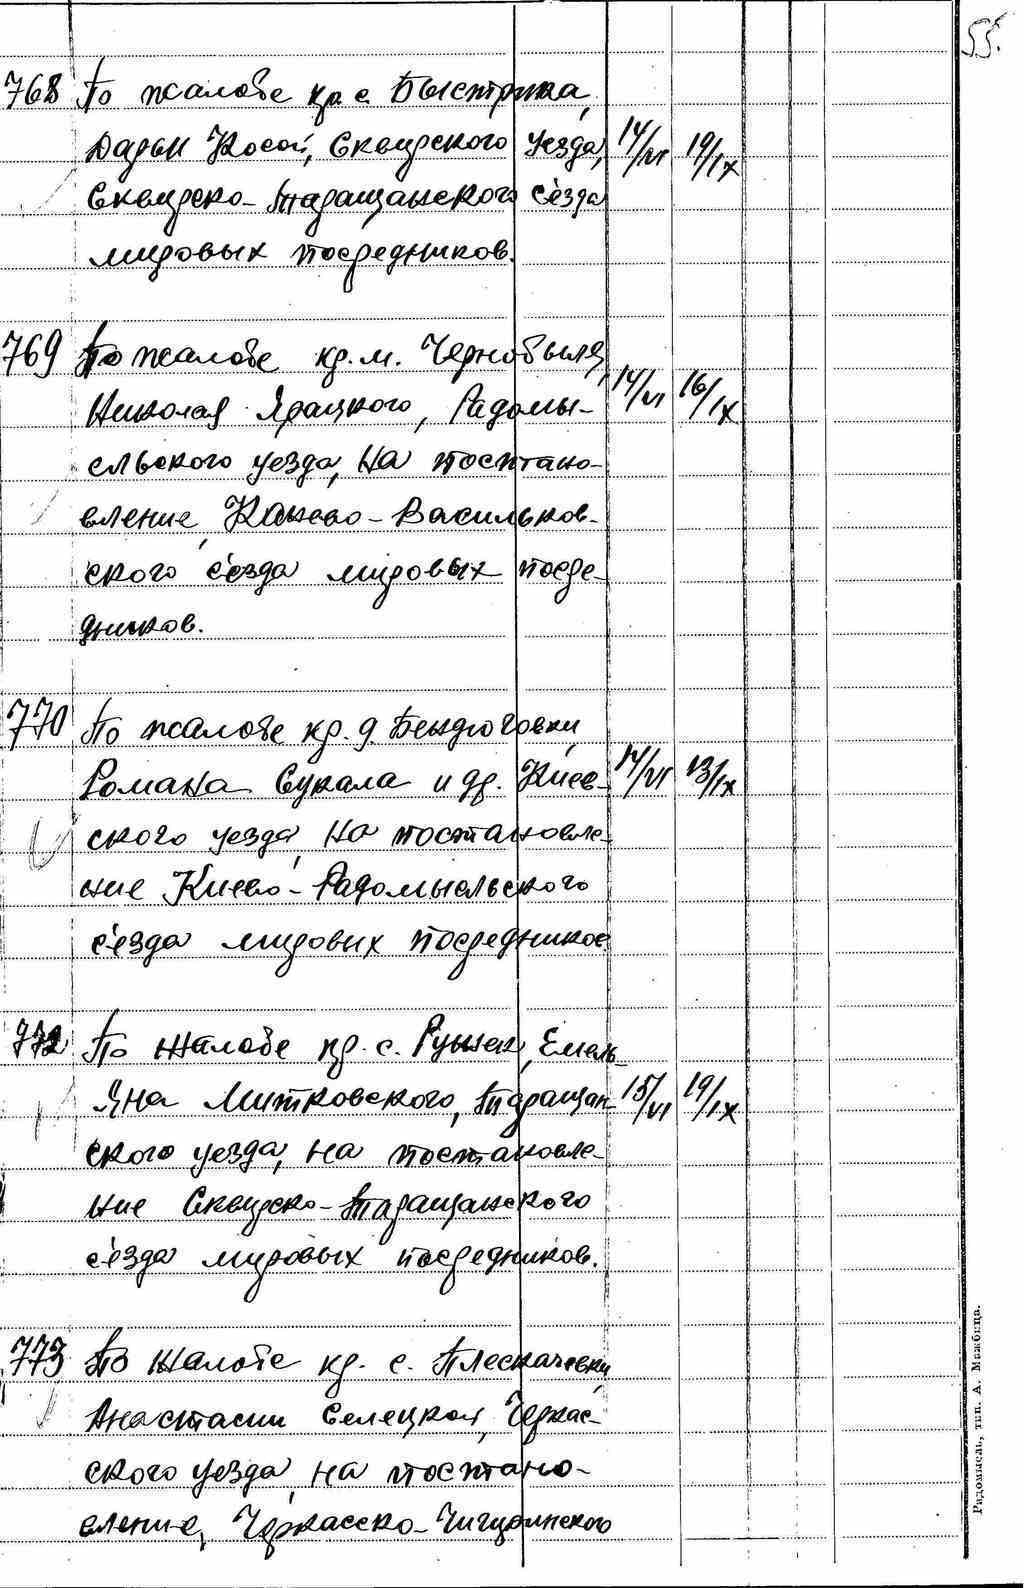 55.
768 По жалобе кр. с. Быстрика,
Дарьи Косой, Сквирского уезда, 14/VI 19/IX
Сквирско-Таращанского с'езда
мировых посредников.
769 По жалобе кр. м. Чернобыля,
Николая Яроцкого, Радомы- 14/VI 16/IX
сльского уезда, на постано-
вление Канево-Васильков-
ского с'езда мировых посре-
дников.
770 По жалобе кр. д. Бендюговки,
Романа Сукала и др. Киев- 14/VI 13/IX
ского уезда, на постановле-
ние Киево-Радомысльского
с'езда мировых посредников
772 По жалобе кр. с. Ружек, Емель-
яна Митковского, Таращан- 15/VI 19/IX
ского уезда, на постановле-
ние Сквирско-Таращанского
с'езда мировых посредников.
773 По жалобе кр. с. Плескачевки,
Анастасии Селецкой, Черкас-
ского уезда, на постано-
вление, Черкасско-Чигиринского
Радомысль, тип. А. Мажбица.